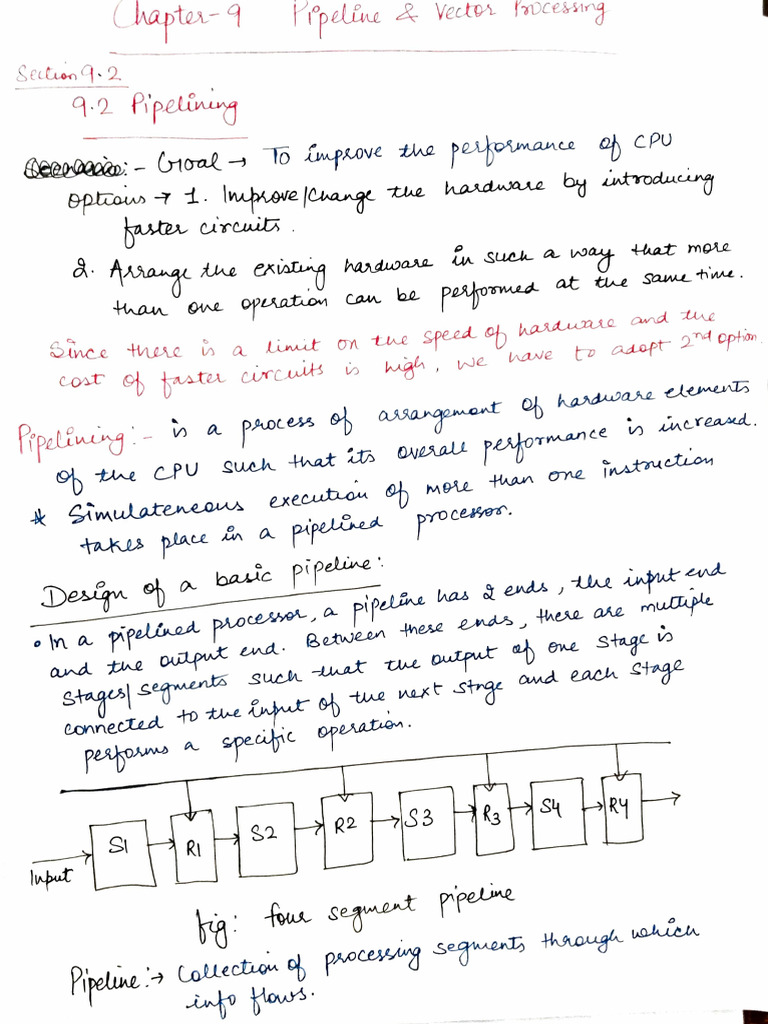 Chapter-9 Pipeline & Vector Processing
Section 9.2
9.2 Pipelining
:- Goal → To improve the performance of CPU
options → 1. Improve/Change the hardware by introducing
faster circuits.
2. Arrange the existing hardware in such a way that more
than one operation can be performed at the same time.
Since there is a limit on the speed of hardware and the
cost of faster circuits is high, we have to adopt 2nd option.
Pipelining:- is a process of arrangement of hardware elements
of the CPU such that its overall performance is increased.
* Simulateneous execution of more than one instruction
takes place in a pipelined processor.
Design of a basic pipeline:
• In a pipelined processor, a pipeline has 2 ends, the input end
and the output end. Between these ends, there are multiple
stages/segments such that the output of one stage is
connected to the input of the next stnge and each stage
performs a specific operation.
Input S1 R1 S2 R2 S3 R3 S4 R4
fig: four segment pipeline
Pipeline:→ Collection of processing segments through which
info flows.